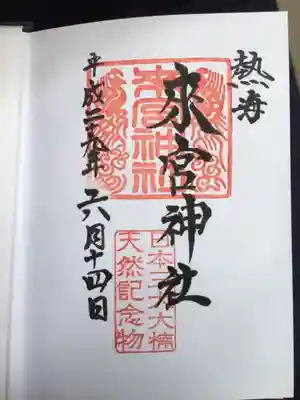 熱海
來宮神社
來宮神社
日本三大楠
天然記念物
平成二九年六月十四日